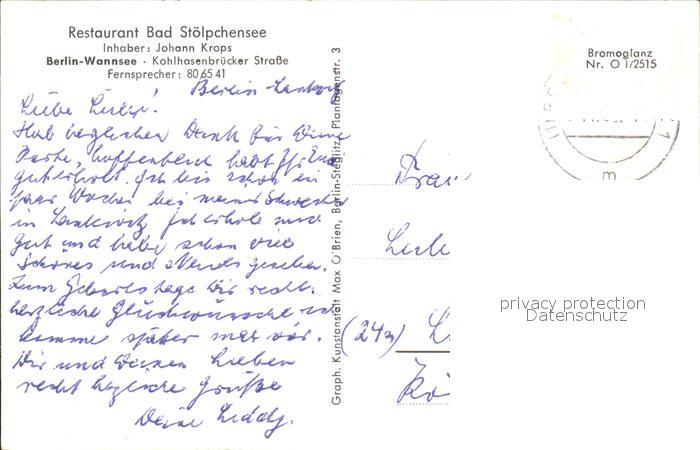 Restaurant Bad Stölpchensee
Inhaber: Johann Krops
Berlin-Wannsee · Kohlhasenbrücker Straße
Fernsprecher: 80 65 41
Berlin-Lankwitz
Liebe
Hab herzlichen Dank für Deine
Karte, hoffendlich habt Ihr Euch
gut erholt. Ich bin schon ein
paar Wochen bei meiner Schwester
in Lankwitz. Ich erhole mich
gut und habe schon viel
Schönes und Neues gesehen.
Zum Geburtstage Dir recht
herzliche Glückwünsche ich
komme später mal vor.
Dir und Deinen Lieben
recht herzliche Grüße
Deine
Graph. Kunstanstalt Max O'Brien, Berlin-Steglitz, Plantagenstr. 3
Bromoglanz
Nr. O I/2515
m
(24a)
privacy protection
Datenschutz